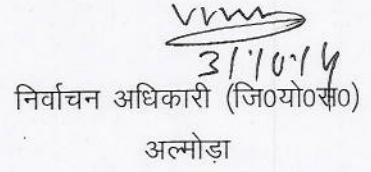 31/10/14
निर्वाचन अधिकारी (जि0यो0स0)
अल्मोड़ा